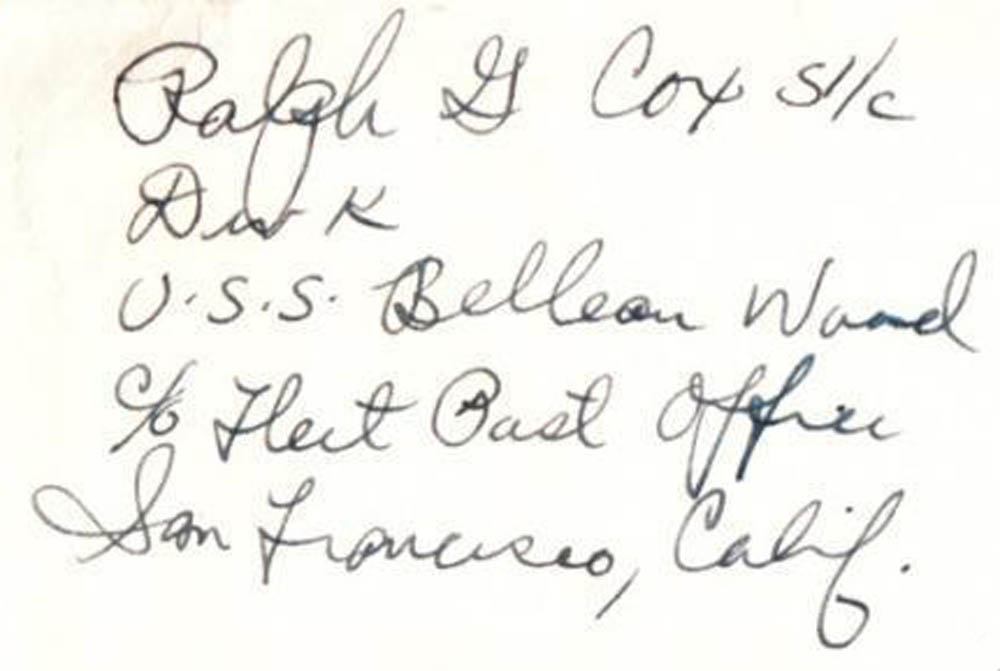 Ralph G Cox S1/c
Div K
U.S.S. Belleau Wood
c/o Fleet Post Office
San Francisco, Calif.